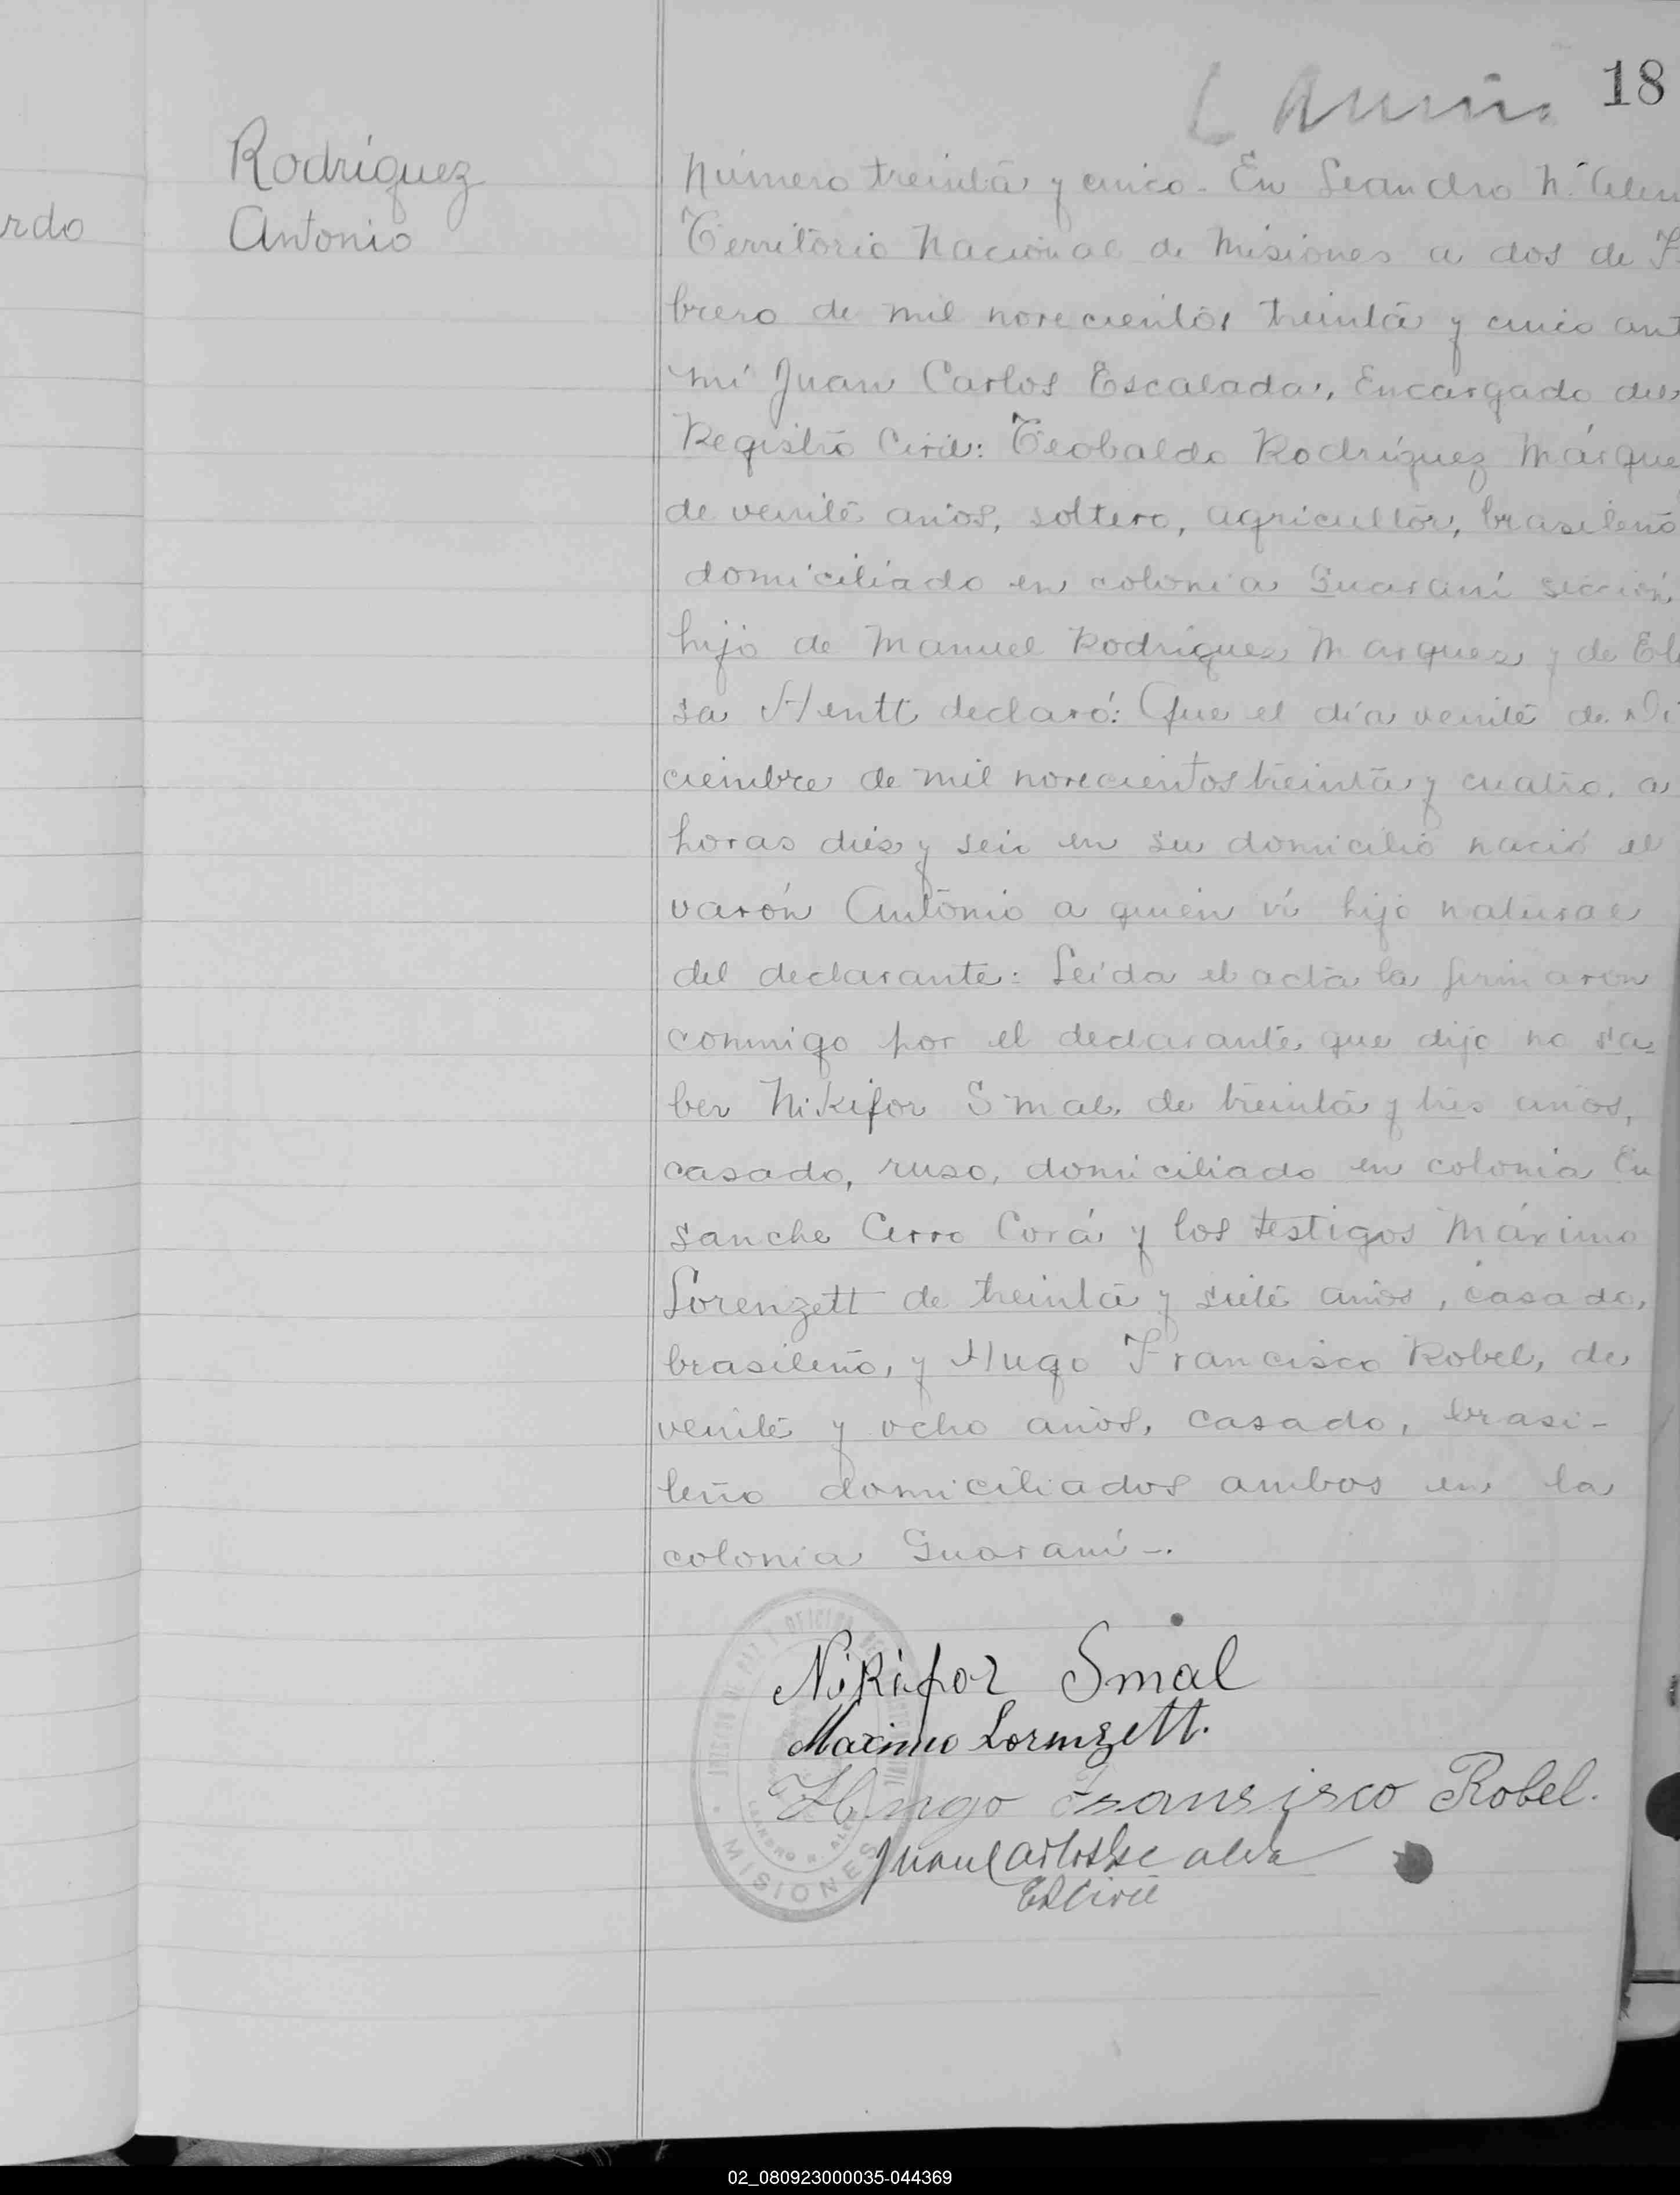 18
rdo
Rodríguez
Antonio
Número treinta y cinco - En Leandro N. Alem
Territorio Nacional de Misiones a dos de F
brero de mil novecientos treinta y cinco ant
mi Juan Carlos Escalada, Encargado del
Registro Civil: Teobaldo Rodríguez Márque
de veinte años, soltero, agricultor, brasileño
domiciliado en colonia Guaraní sección
hijo de Manuel Rodríguez Marquez y de El
sa Hentt declaró: Que el día veinte de Di
ciembre de mil novecientos treinta y cuatro, a
horas diez y seis en su domicilio nació el
varón Antonio a quien ví hijo natural
del declarante: Leída el acta la firmaron
conmigo por el declarante que dijo no sa-
ber Nikifor Smal de treinta y tres años,
casado, ruso, domiciliado en colonia En
sanche Cerro Corá y los testigos Máximo
Lorenzett de treinta y siete años, casado,
brasileño, y Hugo Francisco Robel, de
veinte y ocho años, casado, brasi-
leño domiciliados ambos en la
colonia Guaraní -.
Nikifor Smal
Maximo Lorenzett.
Hugo Fransisco Robel.
Juan Carlos Escalada
E R Civil
MISIONES
02_080923000035-044369